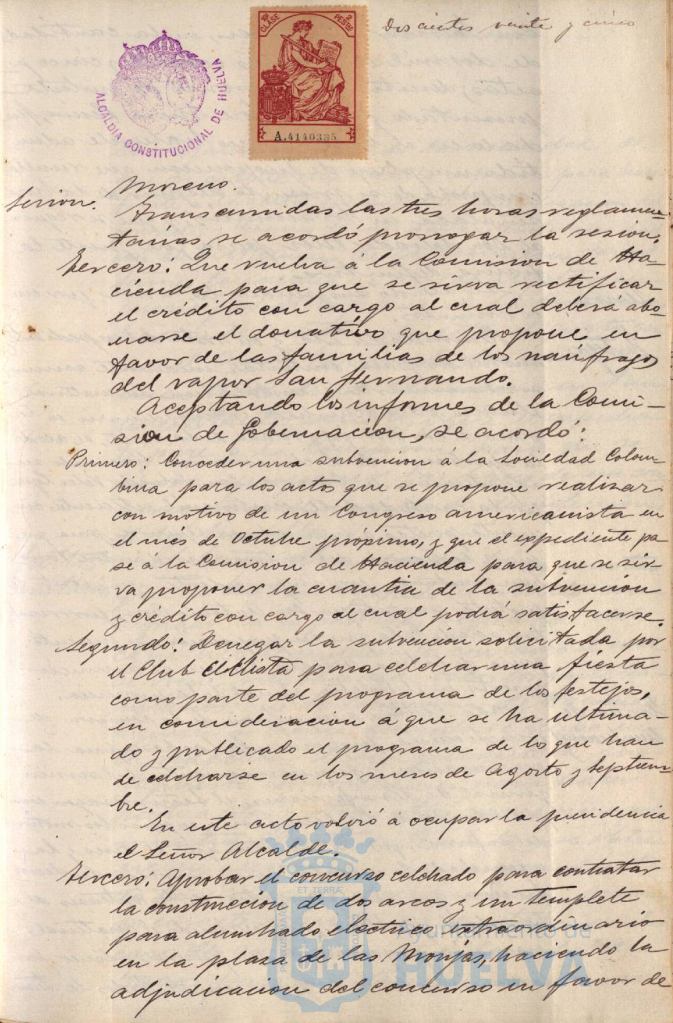 Doscientos veinte y cinco
CLASE PESETA
A.4140335
ALCALDIA CONSTITUCIONAL DE HUELVA
Moreno.
Sesion.
Transcurridas las tres horas reglamen-
tarias se acordó prorrogar la sesion.
Tercero: Que vuelva á la Comision de Ha-
cienda para que se sirva rectificar
el crédito con cargo al cual deberá abo-
narse el donativo que propone en
favor de las familias de los náufragos
del vapor San Fernando.
Aceptando los informes de la Comi-
sion de Gobernacion, se acordó:
Primero: Conceder una subvencion á la Sociedad Colom-
bina para los actos que se propone realizar
con motivo de un Congreso americanista en
el mes de Octubre próximo, y que el expediente pa-
se á la Comision de Hacienda para que se sir-
va proponer la cuantia de la subvencion
y crédito con cargo al cual podrá satisfacerse.
Segundo: Denegar la subvencion solicitada por
el Club Ciclista para celebrar una fiesta
como parte del programa de los festejos,
en consideracion á que se ha ultima-
do y publicado el programa de los que han
de celebrarse en los meses de Agosto y Septiem-
bre.
En este acto volvió á ocupar la presidencia
el Señor Alcalde.
Tercero: Aprobar el concurso celebrado para contratar
la construccion de dos arcos y un templete
para alumbrado electrico extraordinario
en la plaza de las Monjas, haciendo la
adjudicacion del concurso en favor de
HUELVA